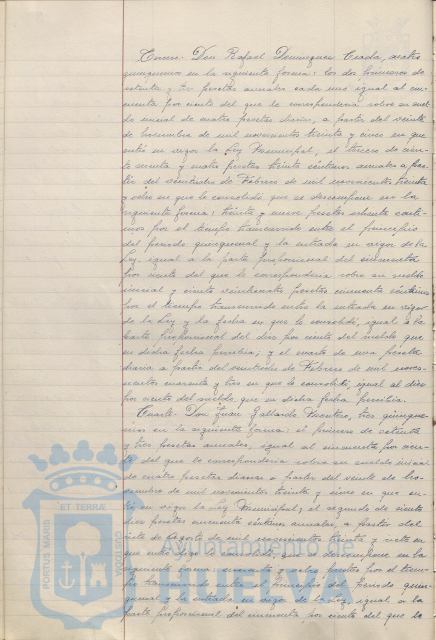 Tercero. Don Rafael Dominguez Criada, cuatro
quinquenios en la siguiente forma: los dos primeros de
setenta y tres pesetas anuales cada uno igual al cin-
cuenta por ciento del que le correspondería sobre su suel-
do inicial de cuatro pesetas diarias, a partir del veinte
de Noviembre de mil novecientos treinta y cinco en que
entró en vigor la Ley Municipal; el tercero de cien-
to y cuatro pesetas treinta céntimos anuales a par-
tir del veintidos de Febrero de mil novecientos treinta
y ocho en que lo consolidó que se descompone en la
siguiente forma: treinta y nueve pesetas setenta cénti-
mos por el tiempo transcurrido entre el principio
del periodo quinquenal y la entrada en vigor de la
Ley, igual a la parte proporcional del cincuenta
por ciento del que le correspondería sobre su sueldo
inicial y pesetas cincuenta céntimos
por el tiempo transcurrido entre la entrada en vigor
de la Ley y la fecha en que lo consolidó, igual a la
parte proporcional del diez por ciento del sueldo que
en dicha fecha percibía; y el cuarto de una peseta
diaria a partir del veintidos de Febrero de mil nove-
cientos cuarenta y tres en que lo consolidó, igual al diez
por ciento del sueldo que en dicha fecha percibía.
Cuarto. Don Juan Gallardo, tres quinque-
nios en la siguiente forma: el primero de setenta
y tres pesetas anuales, igual al cincuenta por cien-
to del que le correspondería sobre su sueldo inicial
de cuatro pesetas diarias a partir del veinte de No-
viembre de mil novecientos treinta y cinco en que en-
tró en vigor la Ley Municipal; el segundo de ciento
diez pesetas cincuenta céntimos anuales, a partir del
siete de Agosto de mil novecientos treinta y siete en
que lo consolidó, que se descompone en la
siguiente forma: y cuatro pesetas por el tiem-
po transcurrido entre el principio del periodo quin-
quenal y la entrada en vigor de la Ley, igual a la
parte proporcional del cincuenta por ciento del que le
PORTUS MARIS
ET TERRAE
CUSTODIA
Ayuntamiento de
HUELVA